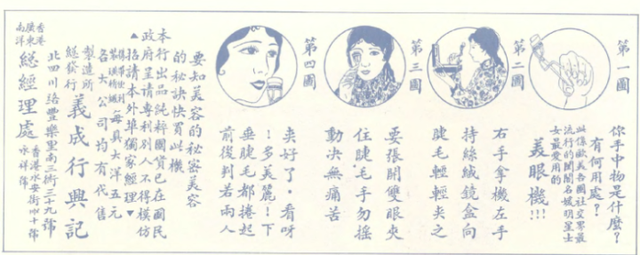 你手中物是什麼?
有何用處?
此係歐美各國社交界最
流行的閨閣名媛明星女士
最愛用的
美眼機!!!
第二圖
右手拿機左手
持絲絨鏡盒向
睫毛輕輕夾之
第三圖
要張開雙眼夾
住睫毛手勿搖
動決無痛苦
第四圖
夾好了·看呀
!多美麗!下
垂睫毛都捲起
前後判若兩人
要知美容的秘密美容
的秘訣快買此機
本行出品純粹國貨已在國民
政府呈請專利別人不得模仿
▲招請本外埠獨家經理▼
每具大洋五元
各大公司均有代售
製造所
總發行
義成行興記
北四川路豐樂里南三街三十九號
香港
廣東
南洋
總經理處
香港永安街四十號
永祥